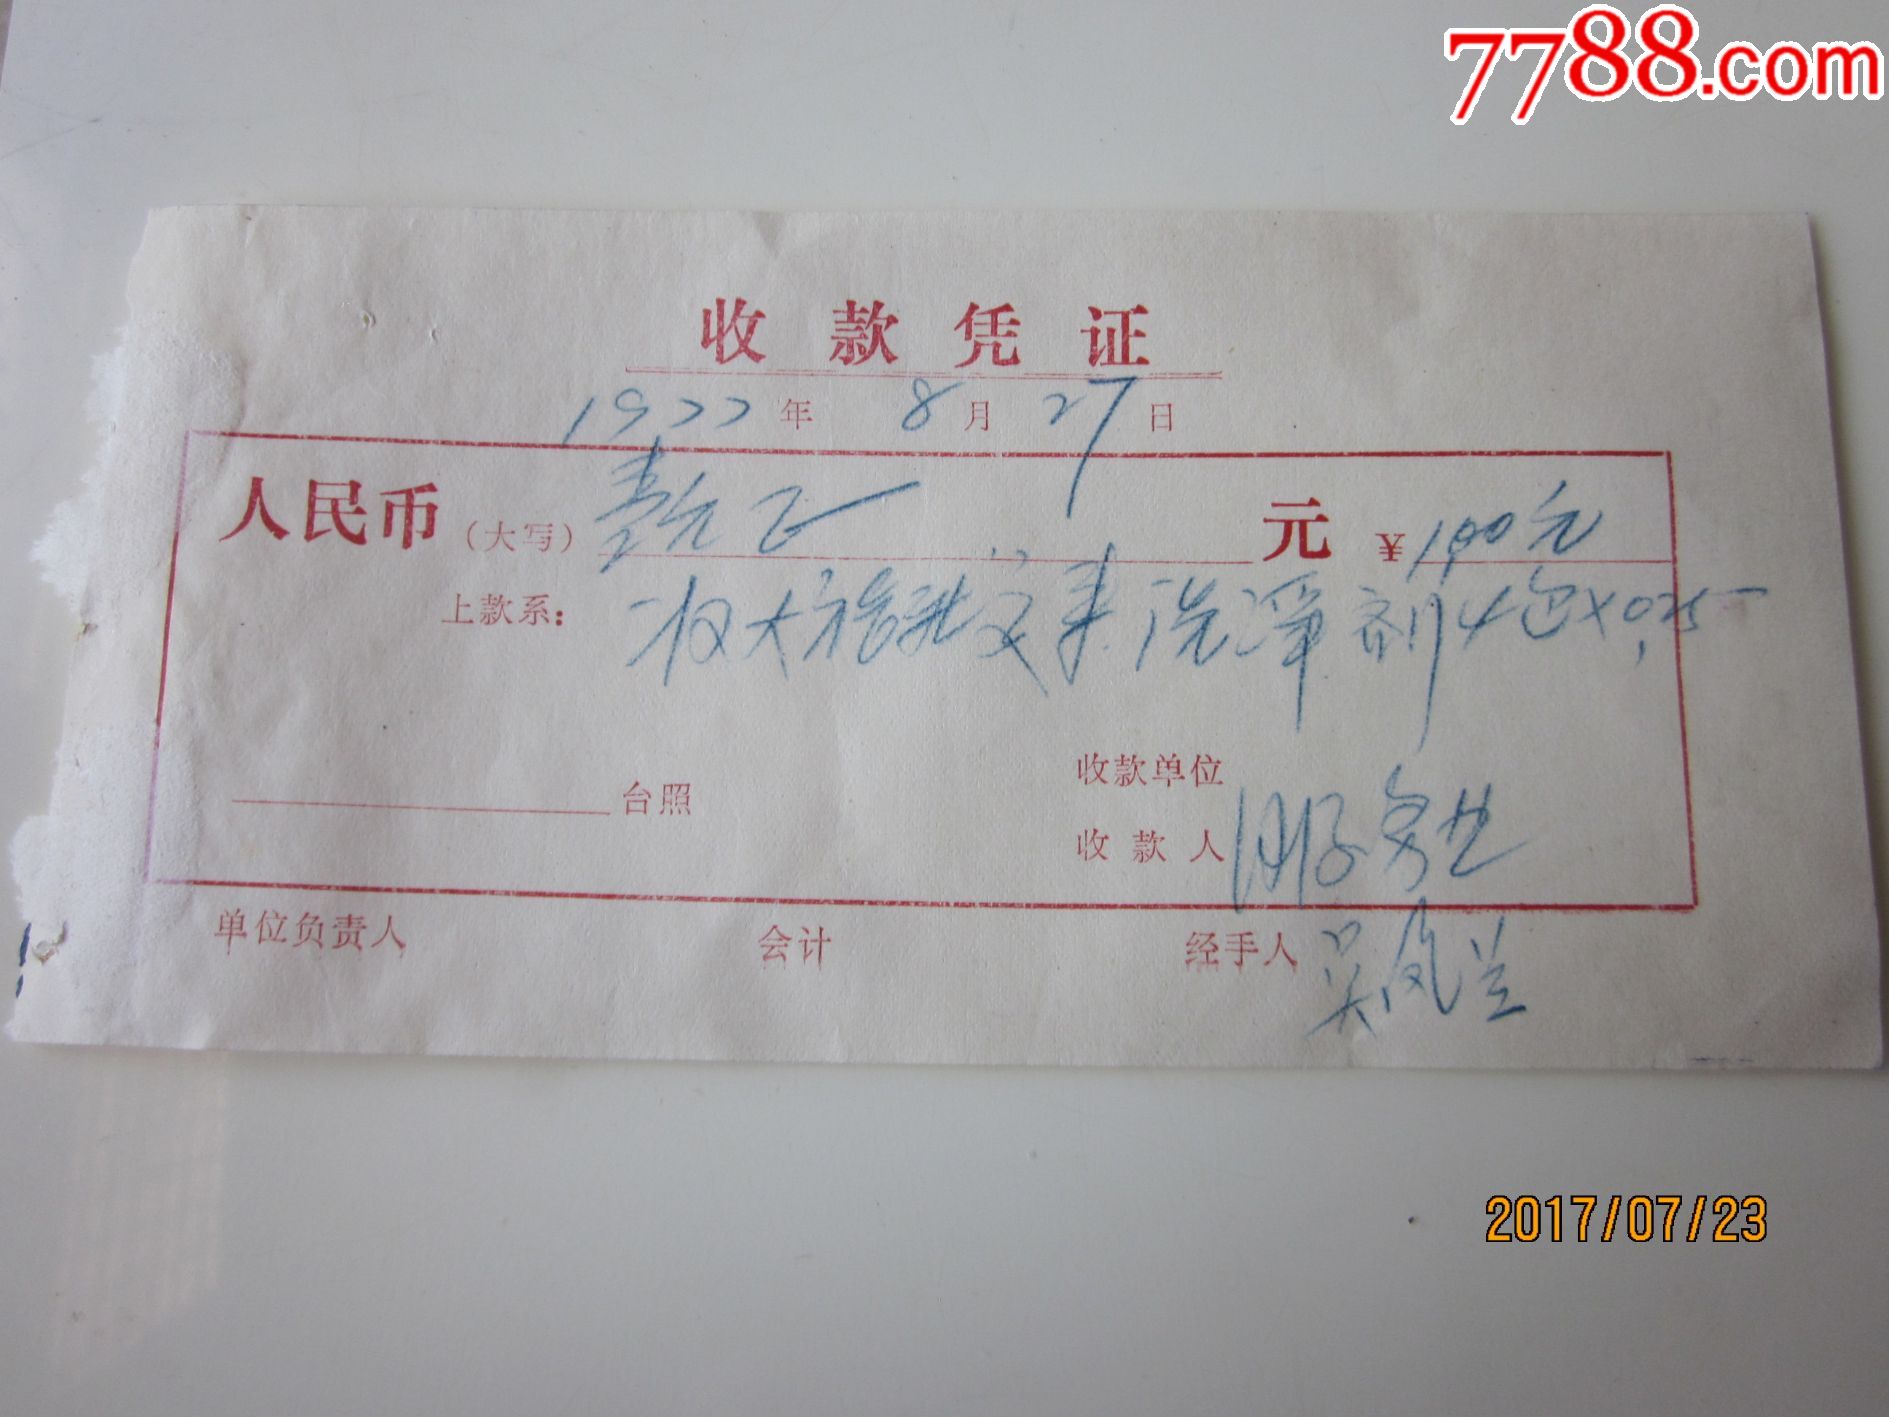 7788.com
收款凭证
1977年 8月 27日
人民币(大写)壹元正 元 ¥1.00元
上款系: 大 来 洗净剂4包×0.25
台照
收款单位
收款人
单位负责人 会计 经手人 吴凤兰
2017/07/23